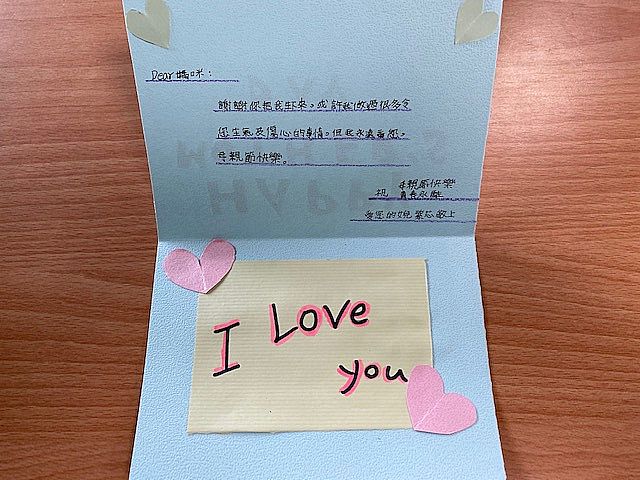 Dear 媽咪：
謝謝你把我生下來。或許我做過很多令
您生氣及傷心的事情。但我永遠愛您。
母親節快樂。
母親節快樂
祝 青春永駐
愛您的女兒 敬上
I Love
you